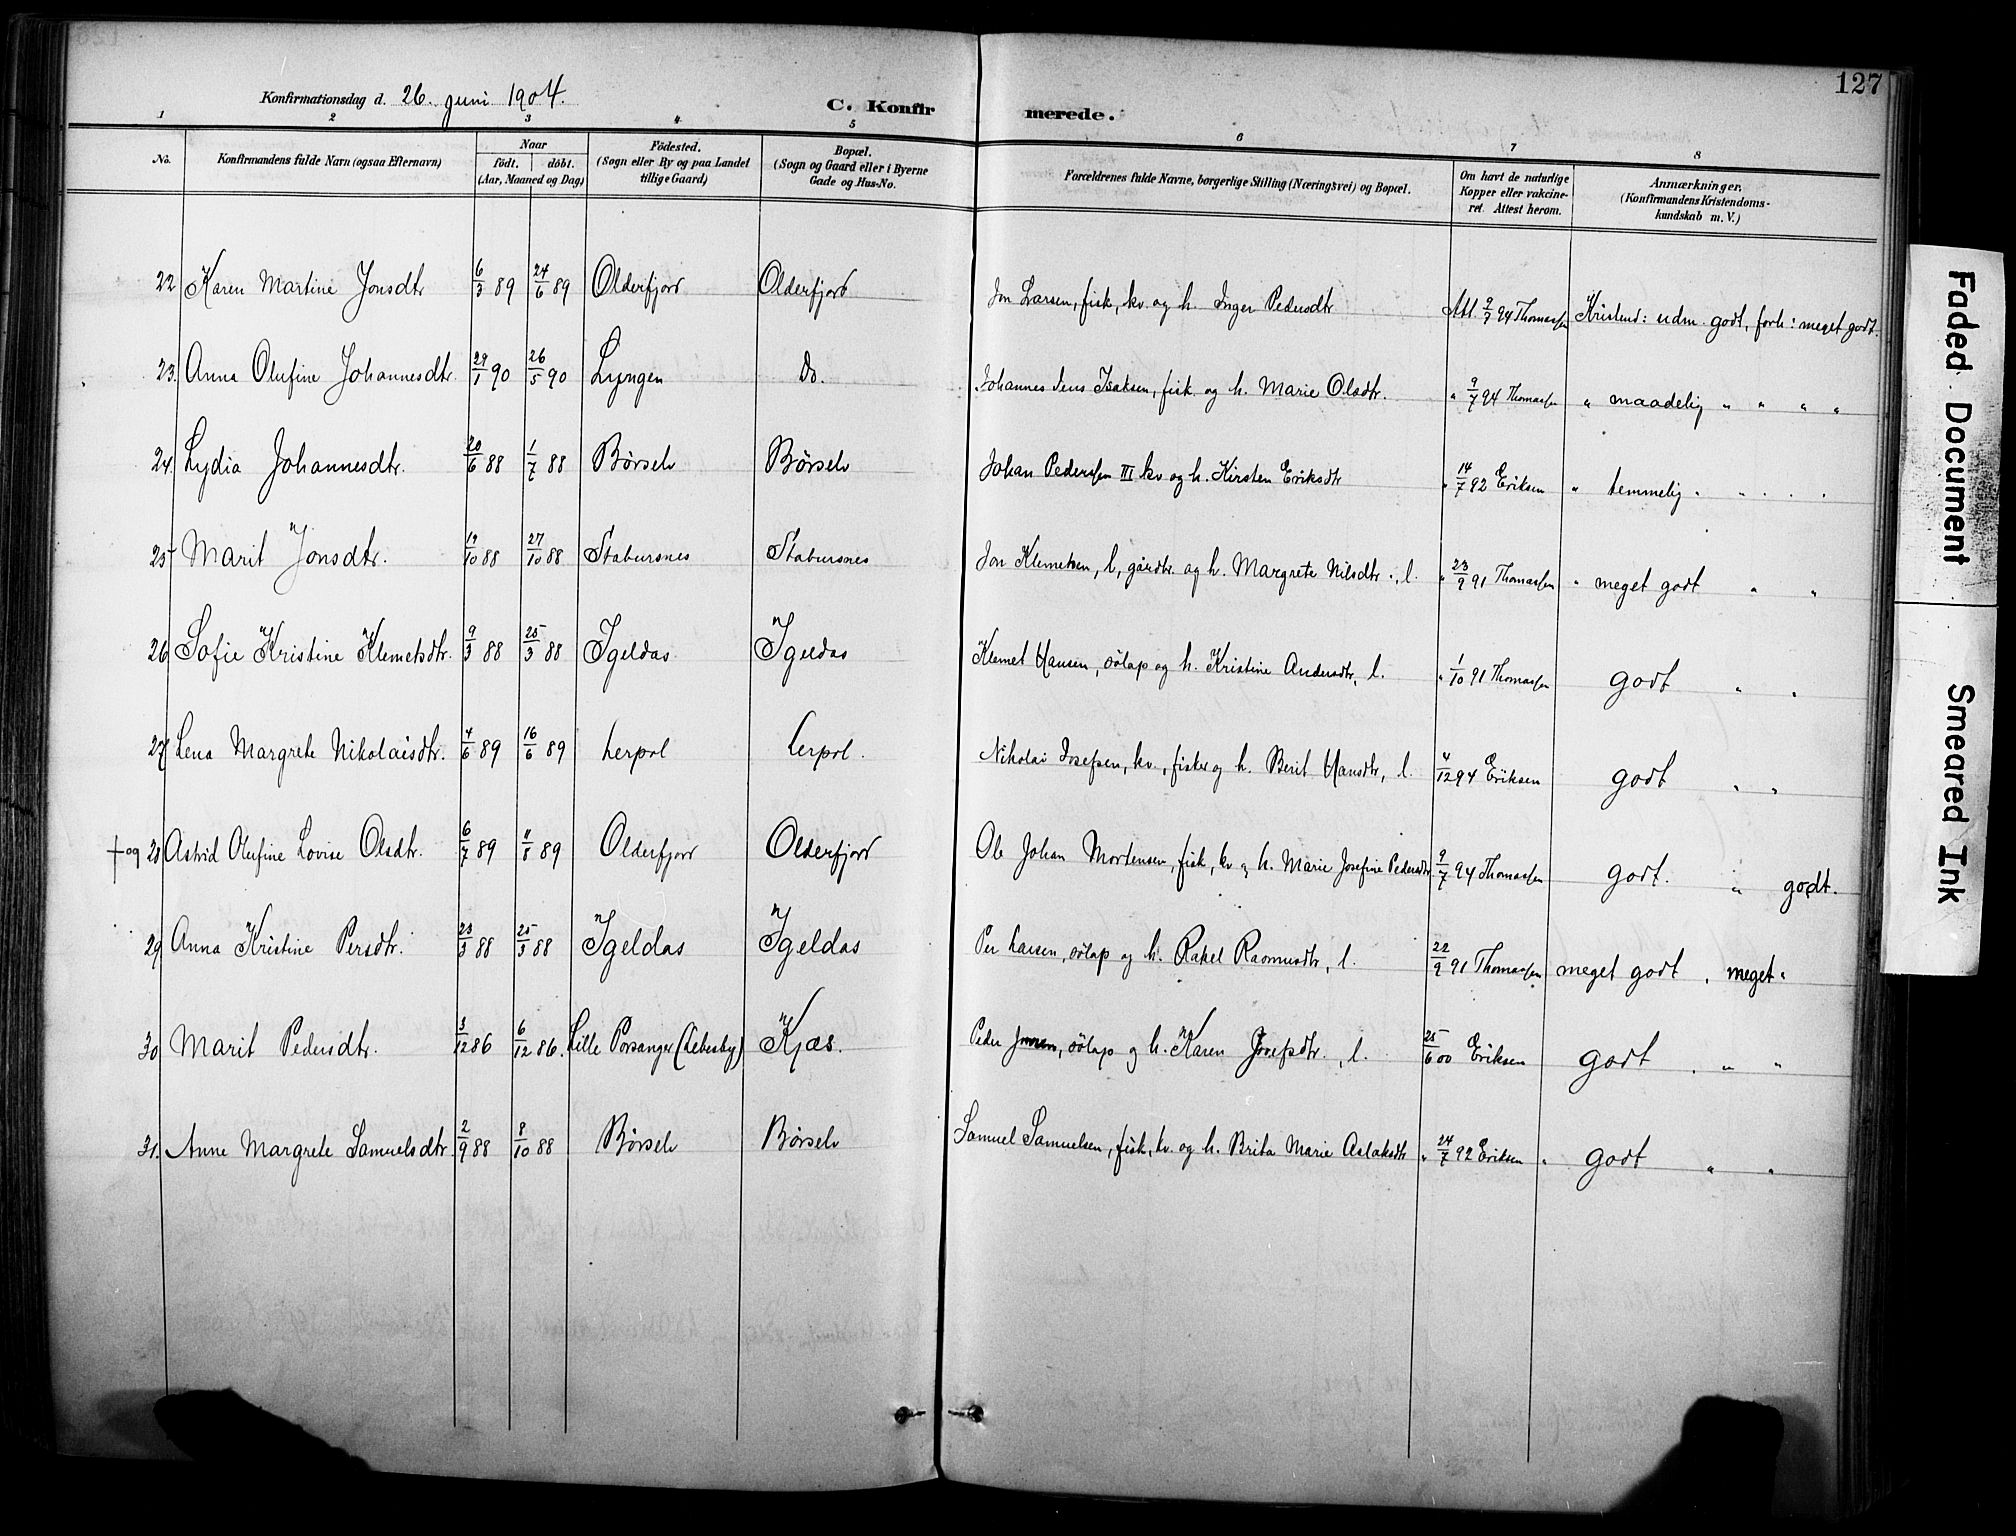 127
Konfirmationsdag d. 26. juni 1904.
C. Konfirmerede.
1 2 3 4 5 6 7 8
No.
Konfirmandens fulde Navn (ogsaa Efternavn)
Naar
födt. döbt.
(Aar, Maaned og Dag)
Födested.
(Sogn eller By og paa Landet
tillige Gaard)
Bopæl.
(Sogn og Gaard eller i Byerne
Gade og Hus-No.
Forældrenes fulde Navne, borgerlige Stilling (Næringsvei) og Bopæl.
Om havt de naturlige
Kopper eller vakcine-
ret. Attest herom.
Anmærkninger.
(Konfirmandens Kristendoms-
kundskab m.V.)
22 Karen Martine Jonsdtr 6/3 89 24/6 89 Olderfjord Olderfjord Jon Larsen, fisk, kv. og h. Inger Pedersdtr Att. 9/7 94 Thomassen Kristend: udm. godt, forh: meget godt.
23. Anna Olufine Johannesdtr. 29/1 90 26/5 90 Lyngen Do. Johannes Jens Isaksen, fisk. og h. Marie Olsdtr. " 9/7 94 Thomassen " maadelig " " " "
24. Lydia Johannesdtr. 20/6 88 1/7 88 Börselv Börselv Johan Pederssen III kv og h. Kirsten Eriksdtr " 14/7 92 Eriksen " temmelig " " " " "
25 Marit Jonsdtr. 19/10 88 27/10 88 Stabursnes Stabursnes Jon Klemetsen, l, gårdbr. og h. Margrete Nilsdtr., l. " 23/9 91 Thomassen " meget godt " "
26 Sofie Kristine Klemetsdtr. 9/3 88 25/3 88 Igeldas Igeldas Klemet Hansen, sölap og h. Kristine Andersdtr, l. " 1/10 91 Thomassen godt " "
27 Lena Margrete Nikolaisdtr. 4/6 89 16/6 89 Lerpol Lerpol. Nikolai Josefsen, kv., fisker og h. Berit Hansdtr, l. 11/12 94 Eriksen godt " "
† og 28 Astrid Olufine Lovise Olsdtr. 6/7 89 11/8 89 Olderfjord Olderfjord Ole Johan Mortensen, fisk, kv og h. Marie Josefine Pedersdtr. 9/7 94 Thomassen godt. " godt.
29 Anna Kristine Persdtr. 23/3 88 25/3 88 Igeldas Igeldas Per Larsen, sölap og h. Rakel Rasmusdtr, l. 22/9 91 Thomassen meget godt " meget "
30 Marit Pedersdtr. 3/12 86 6/12 86. Lille Porsanger (Lebesby) Kjæs. Peder sölap og h. Karen Josefsdtr., l. 25/6 00 Eriksen godt " " "
31. Anne Margrete Samuelsdtr. 2/9 88 8/10 88 Börselv Börselv Samuel Samuelsen, fisk, kv. og h. Brita Marie Aslaksdtr " 24/7 92 Eriksen " godt " "
Faded Document
Smeared Ink